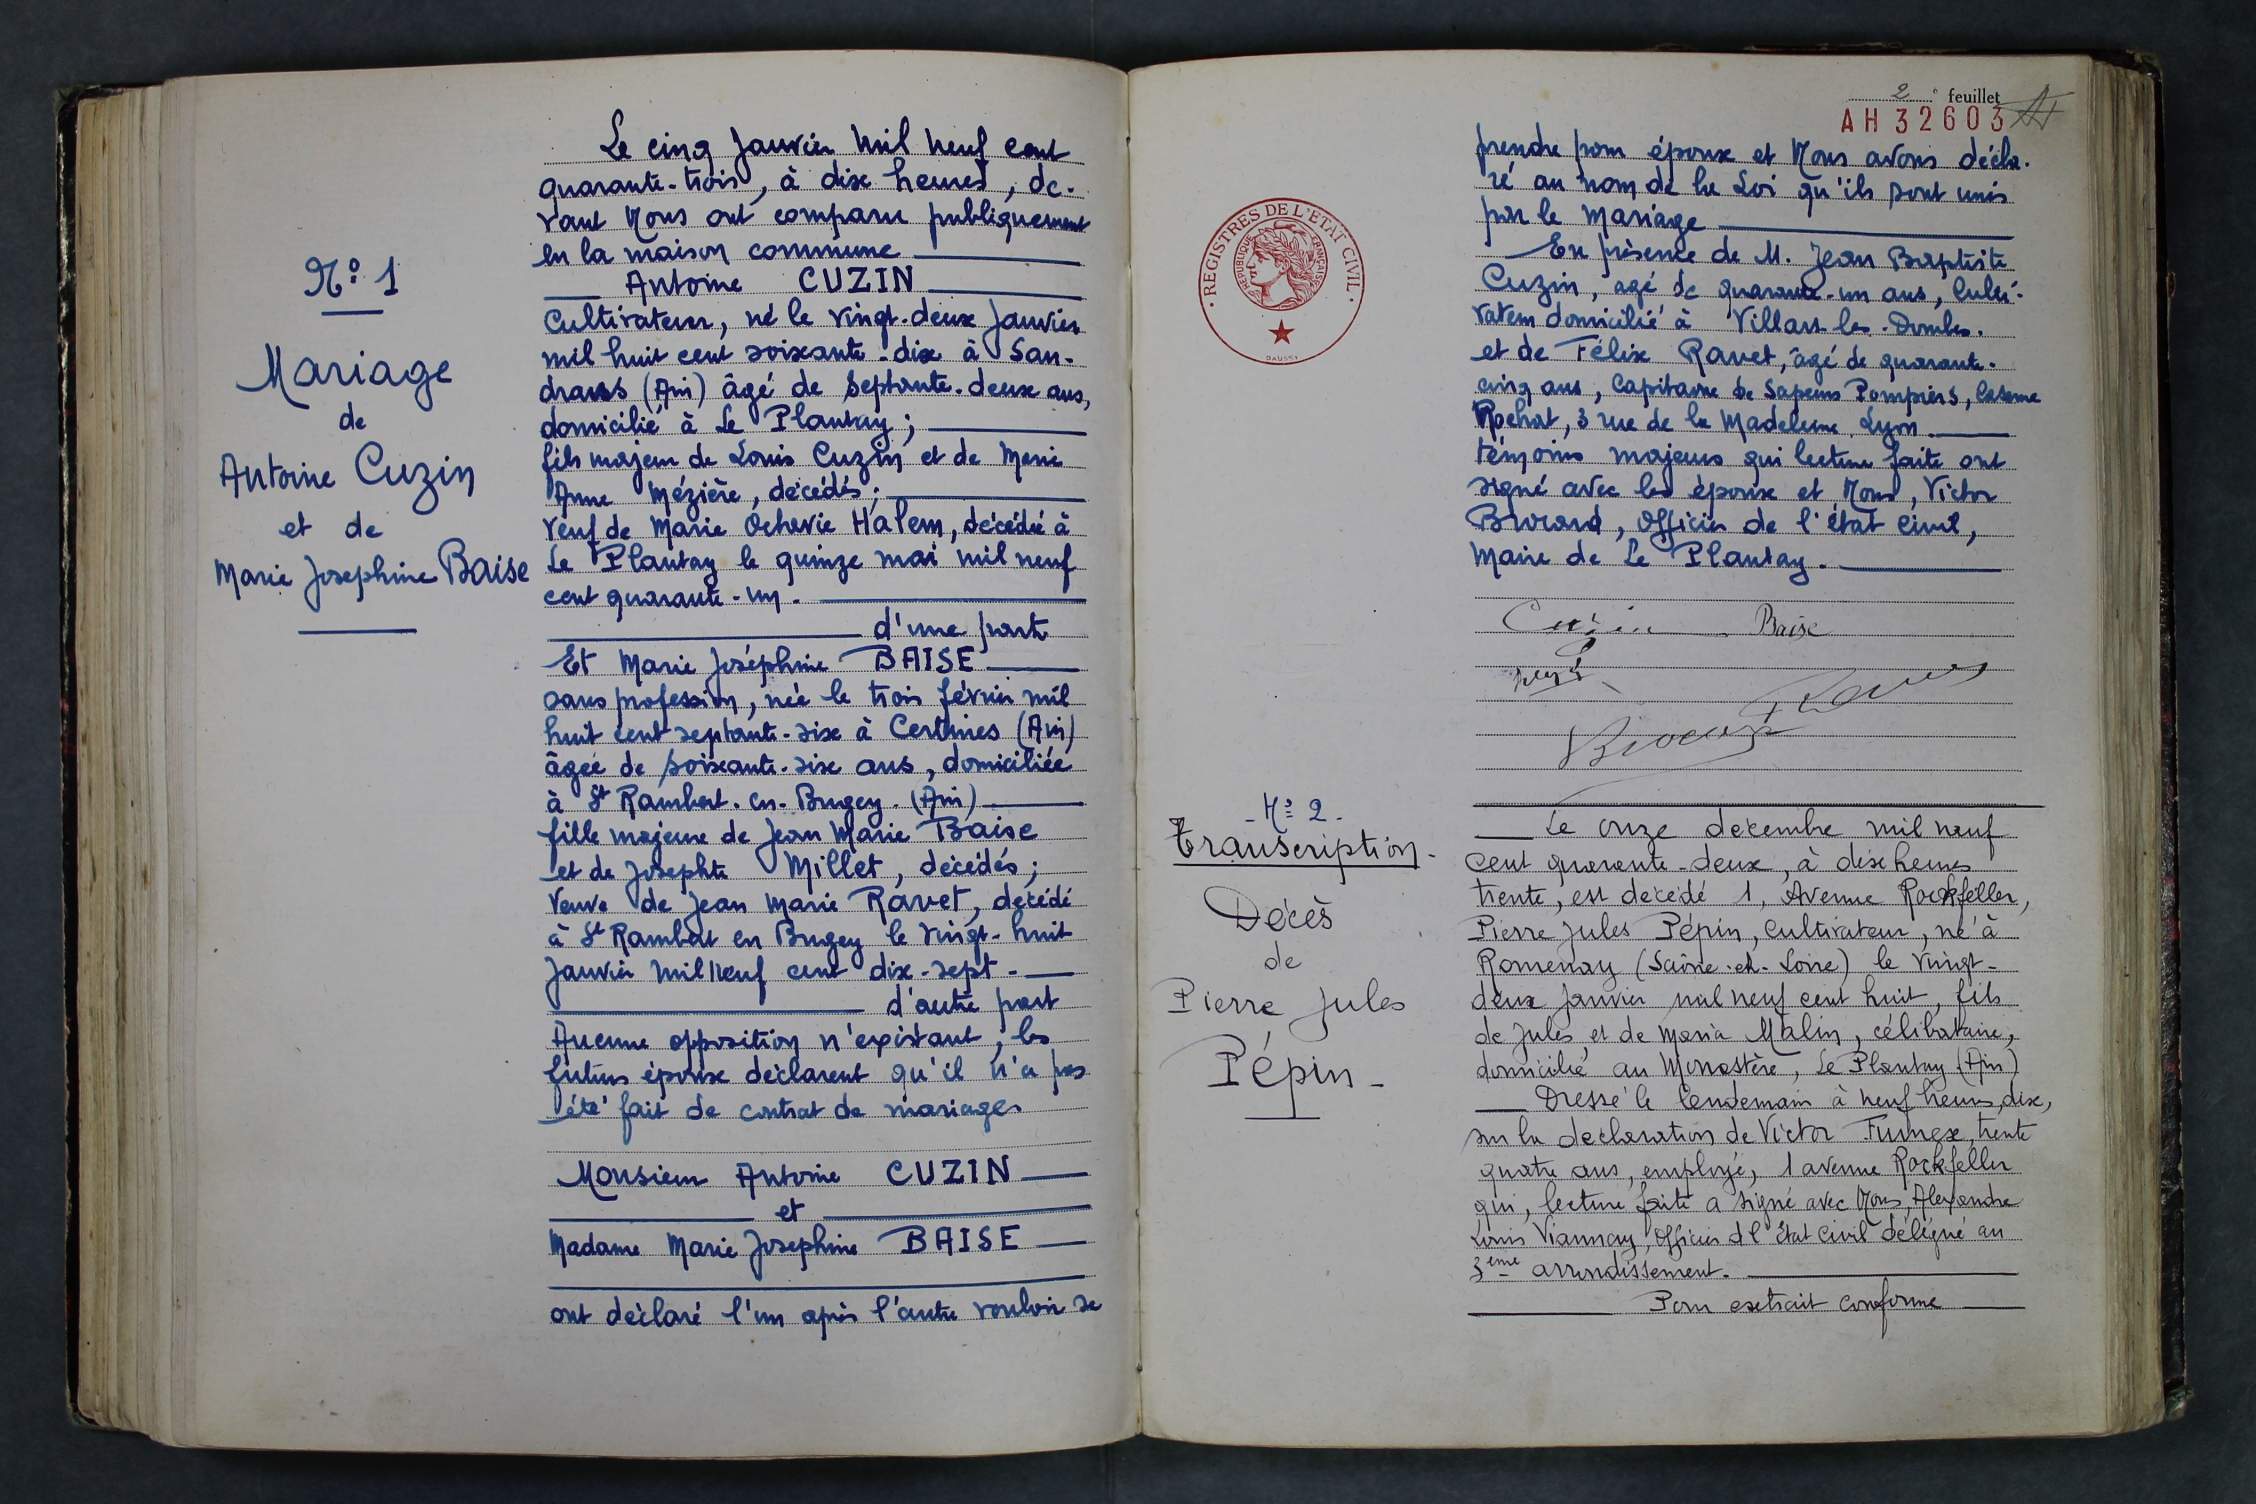 Nº 1
Mariage
de
Antoine Cuzin
et de
Marie Josephine Baise
Le cinq Janvier mil neuf cent
quarante-trois, à dix heures, de-
vant Nous ont comparu publiquement
en la maison commune
Antoine CUZIN
Cultivateur, né le vingt-deux Janvier
mil huit cent soixante-dix à San-
drans (Ain) âgé de septante-deux ans,
domicilié à Le Plantay ;
fils majeur de Louis Cuzin et de Marie
Anne Mézière, décédés ;
veuf de Marie Octavie Halem, décédée à
Le Plantay le quinze mai mil neuf
cent quarante-un.
d'une part
Et Marie Joséphine BAISE
sans profession, née le trois février mil
huit cent septante-six à Certines (Ain)
âgée de soixante-six ans, domiciliée
à St Rambert-en-Bugey (Ain)
fille majeure de Jean Marie Baise
et de Josephte Millet, décédés ;
Veuve de Jean Marie Ravet, décédé
à St Rambert en Bugey le vingt-huit
Janvier mil neuf cent dix-sept
d'autre part
Aucune opposition n'existant, les
futurs époux déclarent qu'il n'a pas
été fait de contrat de mariage
Monsieur Antoine CUZIN
et
Madame Marie Josephine BAISE
ont déclaré l'un après l'autre vouloir se
2e feuillet
AH 32603
REGISTRES DE L'ÉTAT CIVIL
RÉPUBLIQUE FRANÇAISE
DAUSSY
prendre pour époux et Nous avons décla-
ré au nom de la Loi qu'ils sont unis
par le mariage
En présence de M. Jean Baptiste
Cuzin, agé de quarante-un ans, Culti-
vateur domicilié à Villars les-Dombes.
et de Félix Ravet, âgé de quarante-
cinq ans, Capitaine de Sapeurs Pompiers, Caserne
Rochat, 3 rue de la Madeleine Lyon
témoins majeurs qui lecture faite ont
signé avec les époux et Nous, Victor
Brocard, Officier de l'état civil,
Maire de Le Plantay.
Cuzin Baise
Ravet
Brocard
- Nº 2 -
Transcription -
Décès
de
Pierre Jules
Pépin -
Le onze décembre mil neuf
cent quarante-deux, à dix heures
trente, est décédé 1, Avenue Rockfeller,
Pierre Jules Pépin, cultivateur, né à
Romenay (Saône-et-Loire) le vingt-
deux Janvier mil neuf cent huit, fils
de Jules, et de Maria Malin, célibataire,
domicilié au Monastère, Le Plantay (Ain)
Dressé le lendemain à neuf heures, dix,
sur la déclaration de Victor Fumex, trente
quatre ans, employé, 1 avenue Rockfeller
qui, lecture faite a signé avec Nous, Alexandre
Louis Viannay, Officier d l'état Civil délégué au
3ème arrondissement.
Pour extrait conforme